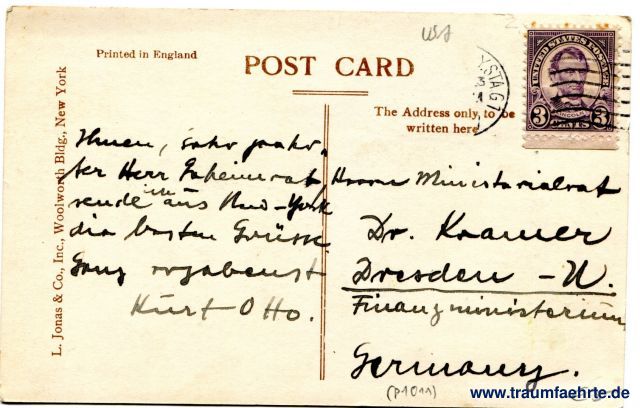 USA
Printed in England
POST CARD
The Address only, to be
written here
L. Jonas & Co., Inc., Woolworth Bldg., New York
UNITED STATES POSTAGE
3 LINCOLN 3
CENTS
STA G
Ihnen, sehr geehr-
ter Herr Geheimrat
sende ich aus New-York
die besten Grüsse.
Ganz ergebenst
Kurt Otto.
Herrn Ministerialrat
Dr. Kramer
Dresden - N.
Finanzministerium
Germany.
(P1011)
www.traumfaehrte.de